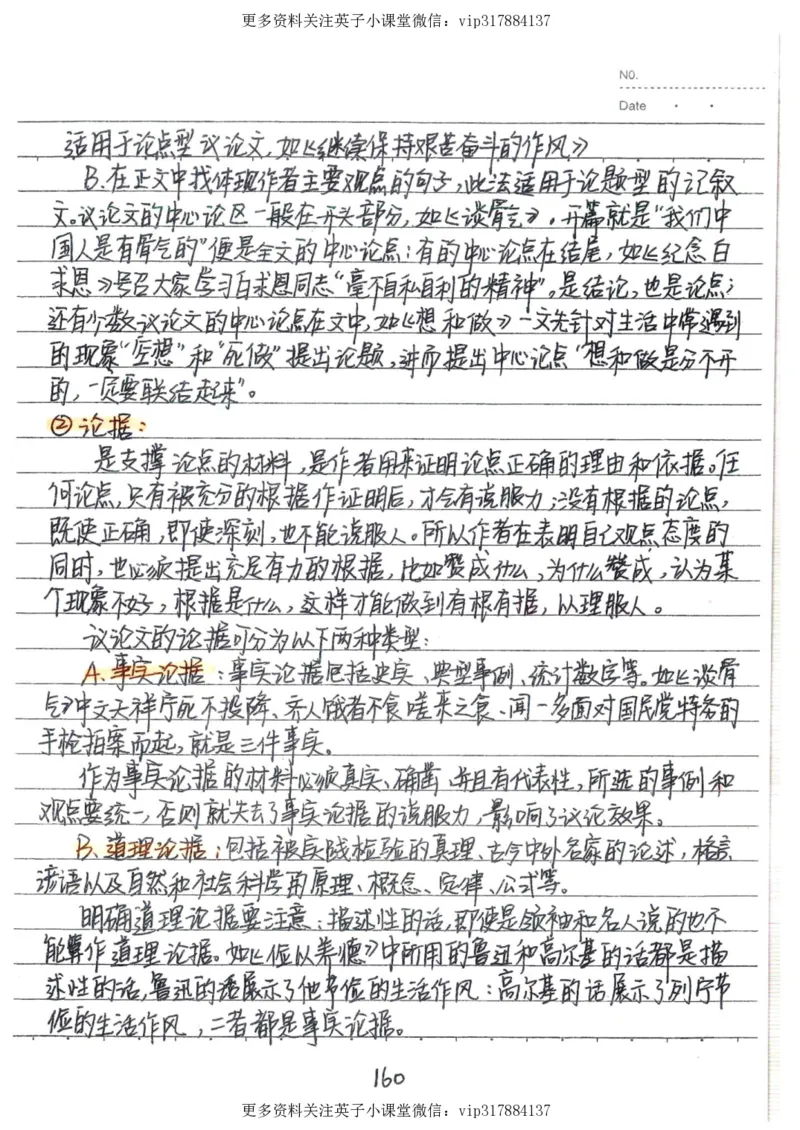 更多资料关注英子小课堂微信：vip317884137
NO.
Date
适用于论点型议论文，如《继续保持艰苦奋斗的作风》
B.在正文中找体现作者主要观点的句子，此法适用于论题型的记叙
文。议论文的中心论区一般在开头部分，如《谈骨气》，开篇就是“我们中
国人是有骨气的”便是全文的中心论点；有的中心论点在结尾，如《纪念白
求恩》号召大家学习白求恩同志“毫不自私自利的精神”。是结论，也是论点；
还有少数议论文的中心论点在文中，如《想和做》一文先针对生活中常遇到
的现象“空想”和“死做”提出论题，进而提出中心论点“想和做是分不开
的，一定要联结起来”。
②论据：
是支撑论点的材料，是作者用来证明论点正确的理由和依据。任
何论点，只有被充分的根据作证明后，才会有说服力；没有根据的论点，
既使正确，即使深刻，也不能说服人。所以作者在表明自己观点态度的
同时，也必须提出充足有力的根据，比如赞成什么，为什么赞成，认为某
个现象不好，根据是什么，这样才能做到有根有据，以理服人。
议论文的论据可分为以下两种类型：
A.事实论据：事实论据包括史实、典型事例、统计数字等。如《谈骨
气》中文天祥宁死不投降、齐人饿者不食嗟来之食、闻一多面对国民党特务的
手枪拍案而起，就是三件事实。
作为事实论据的材料必须真实、确凿、并且有代表性，所选的事例和
观点要统一，否则就失去了事实论据的说服力，影响了议论效果。
B.道理论据；包括被实践检验的真理、古今中外名家的论述，格言
谚语以及自然和社会科学的原理、概念、定律、公式等。
明确道理论据要注意：描述性的话，即使是领袖和名人说的也不
能算作道理论据。如《俭以养德》中所用的鲁迅和高尔基的话都是描
述性的话，鲁迅的话展示了他节俭的生活作风：高尔基的话展示了列宁节
俭的生活作风，二者都是事实论据。
160
更多资料关注英子小课堂微信：vip317884137